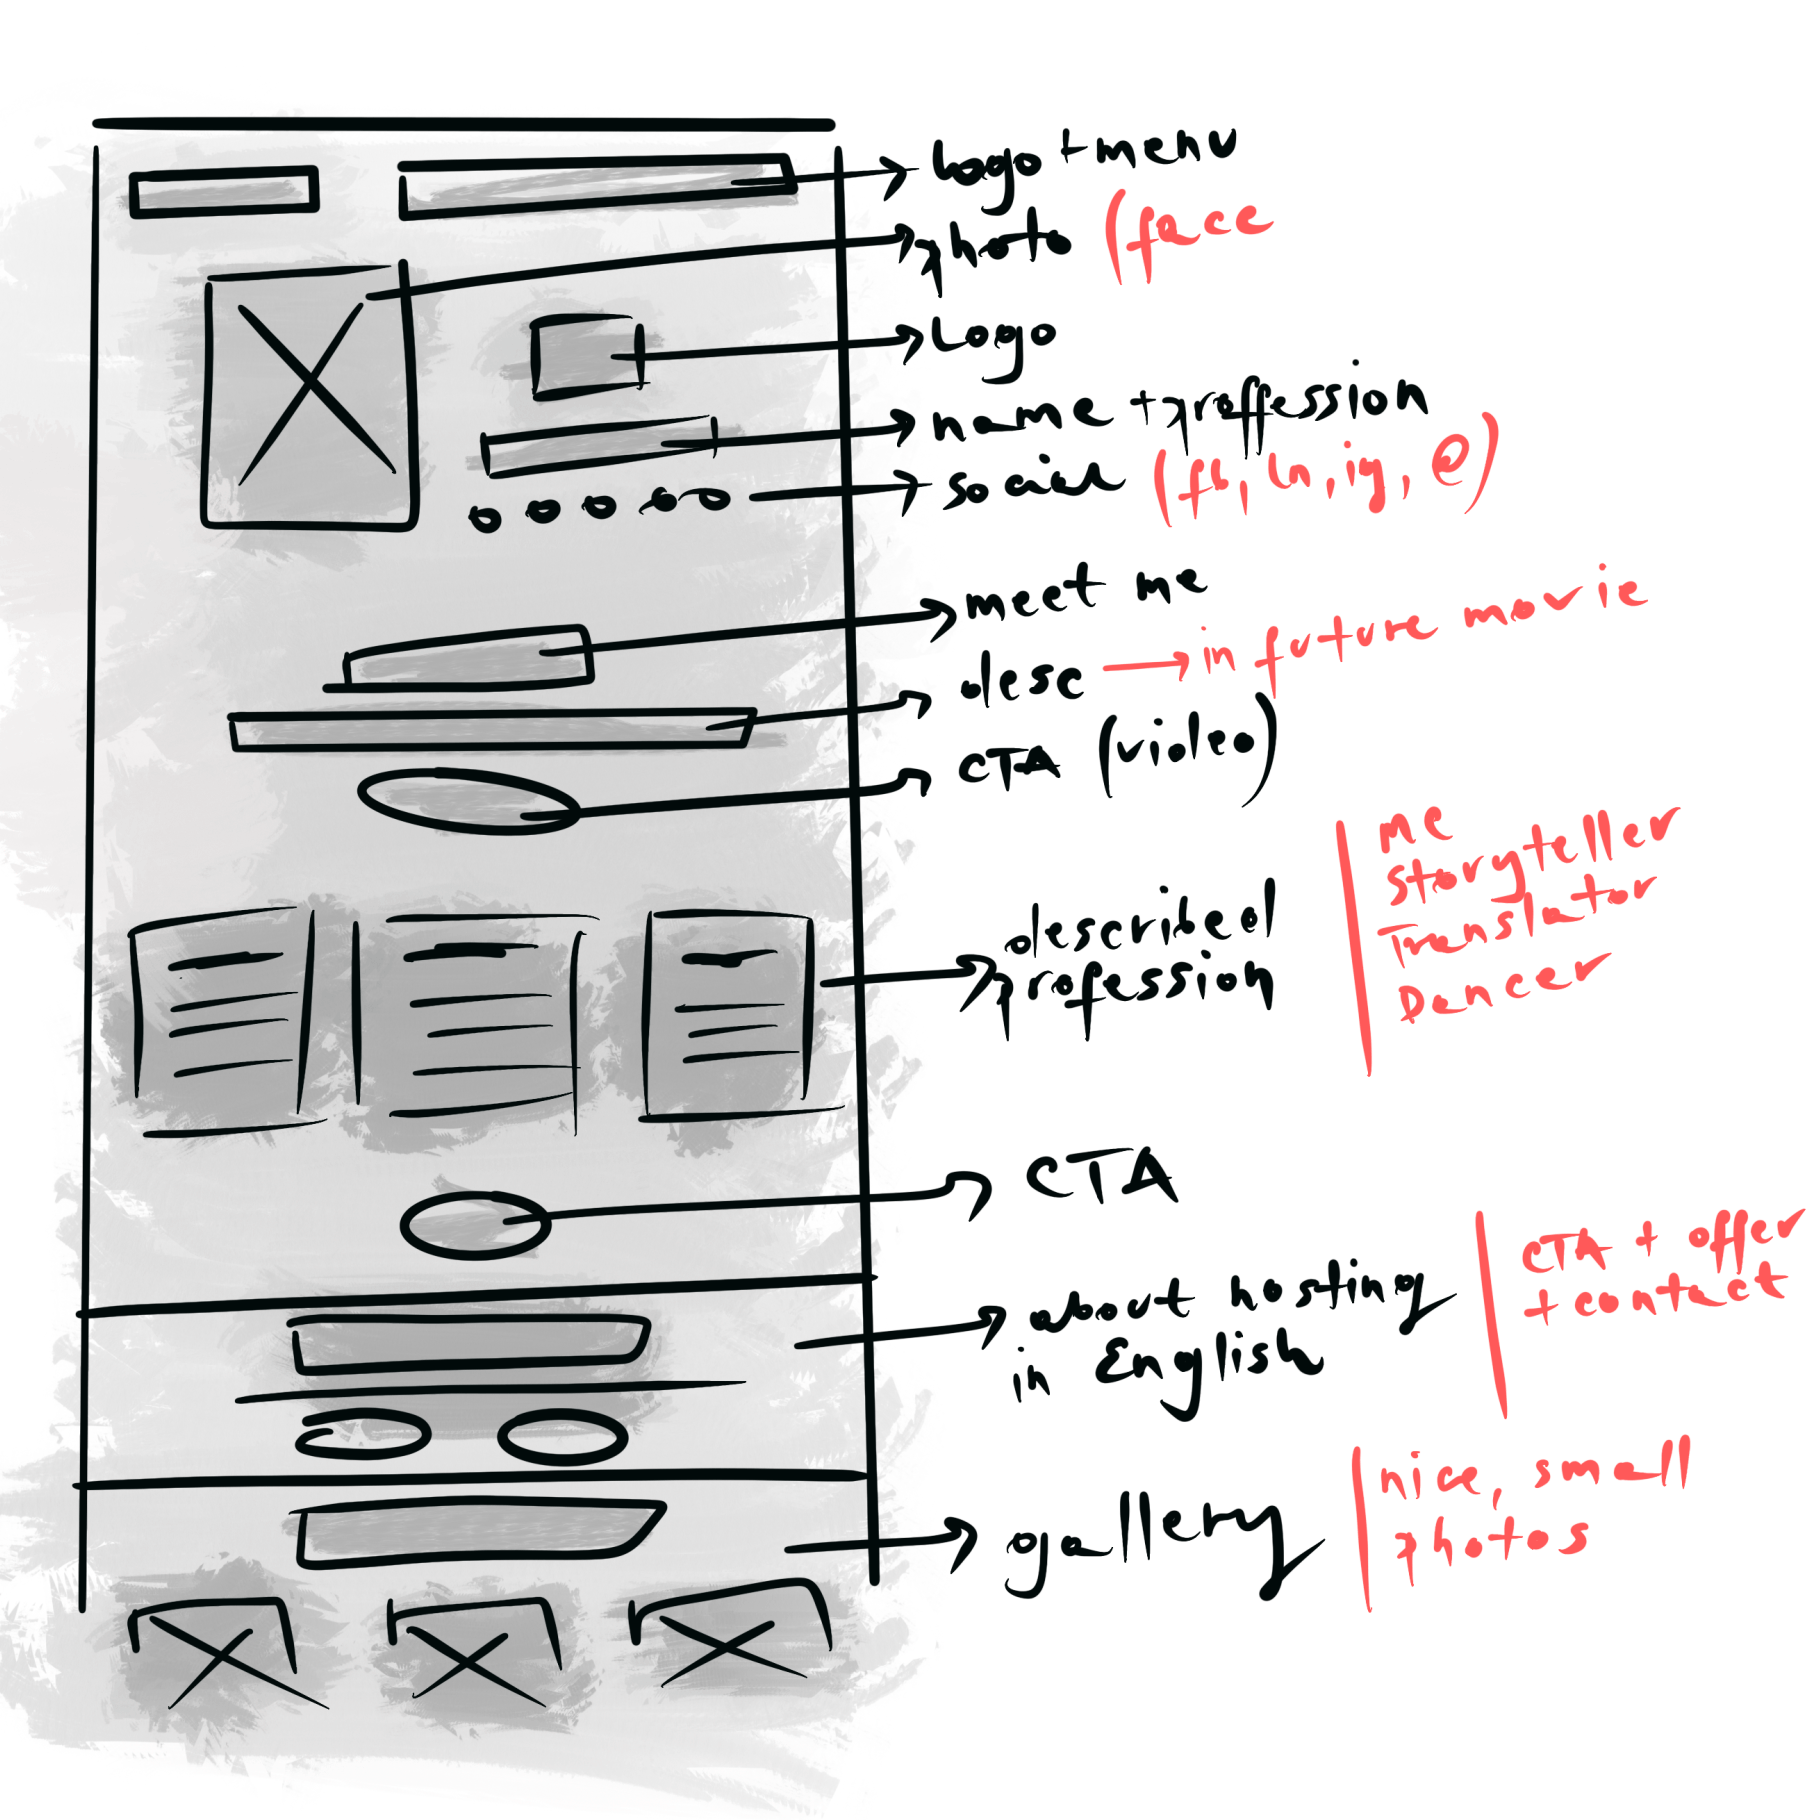 logo + menu
photo (face
Logo
name + proffession
social (fb, ln, ig, @)
meet me
desc → in future movie
CTA (video)
described
profession
me
storyteller
Translator
Dancer
CTA
about hosting
in English
CTA + offer
+ contact
gallery
nice, small
photos